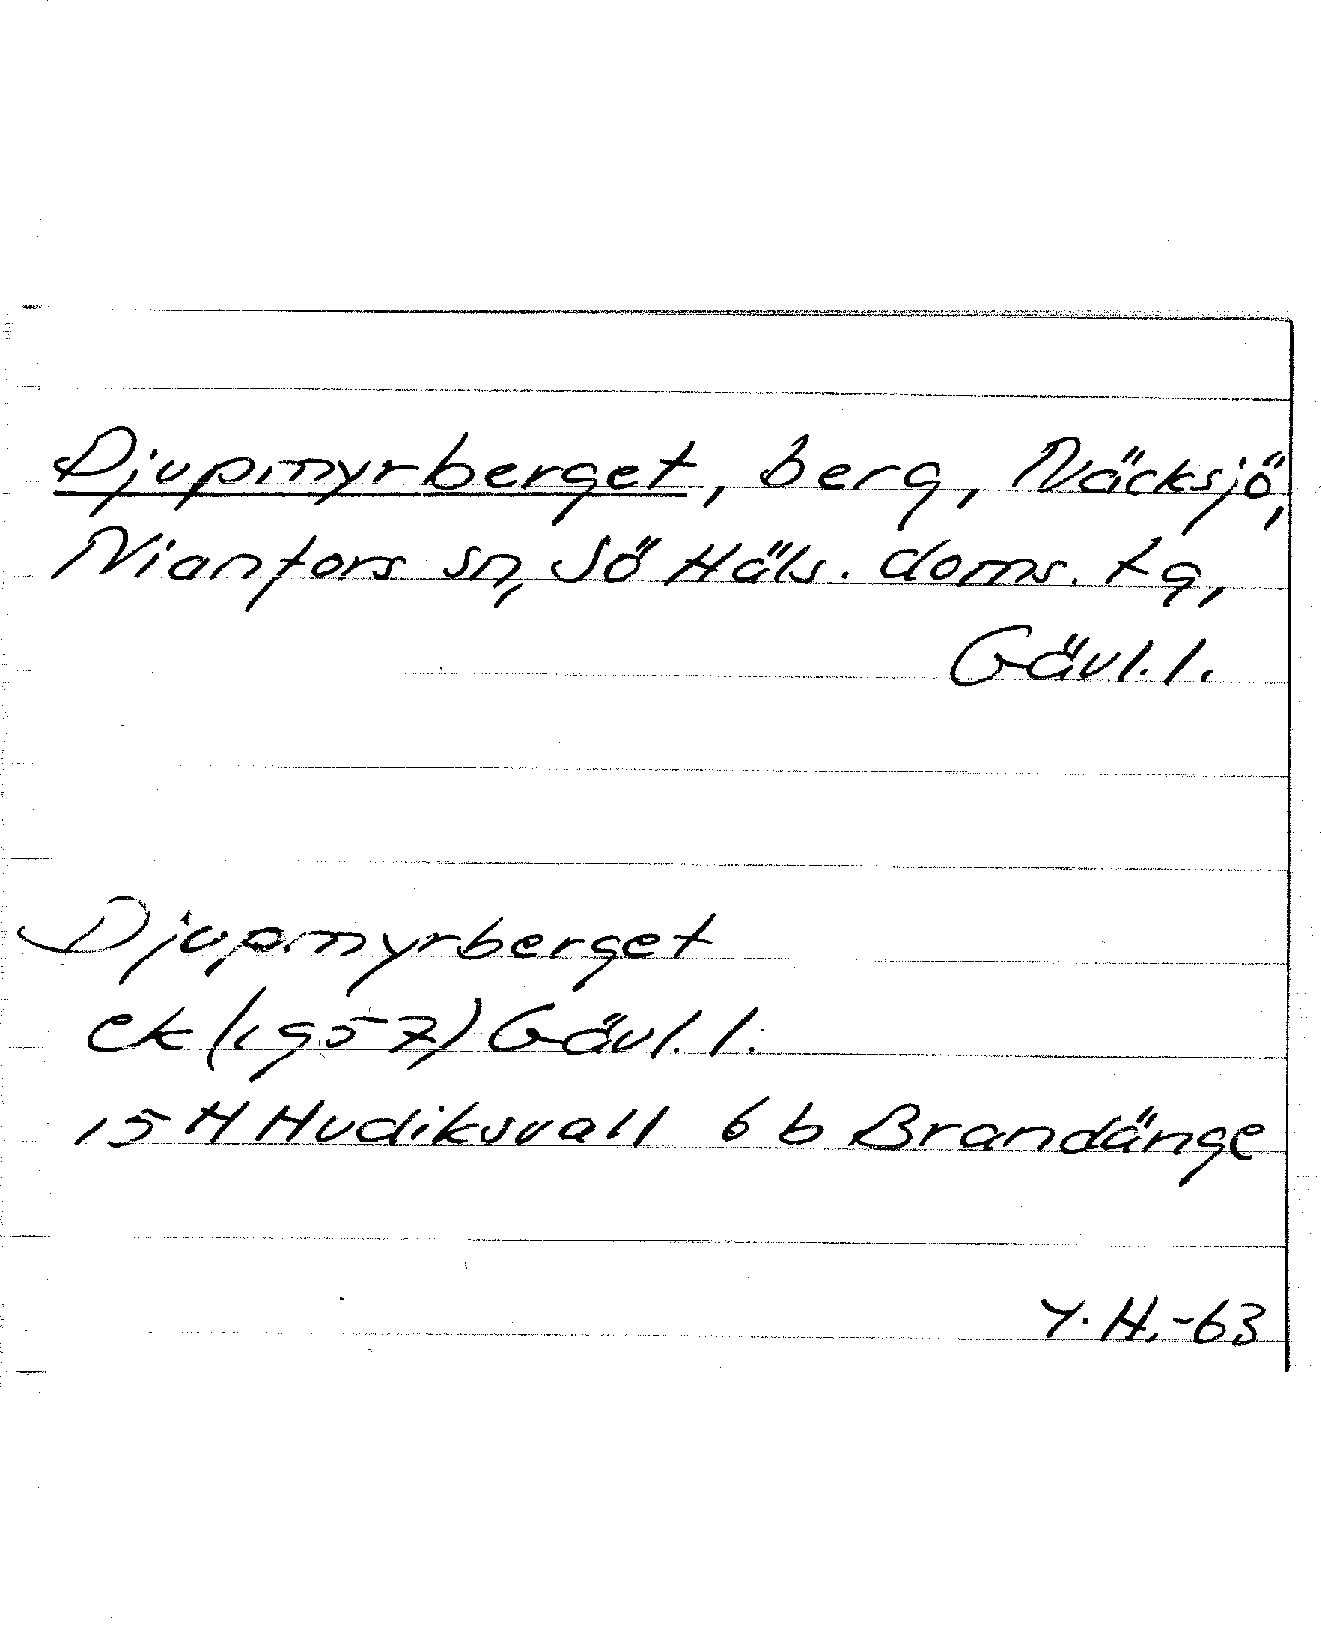 Djupmyrberget, berg, Näcksjö,
Nianfors sn, Sö Häls. doms. tg,
Gävl. l.
Djupmyrberget
ek (1957) Gävl. l.
15 H Hudiksvall 6 b Brandänge
Y. H. -63